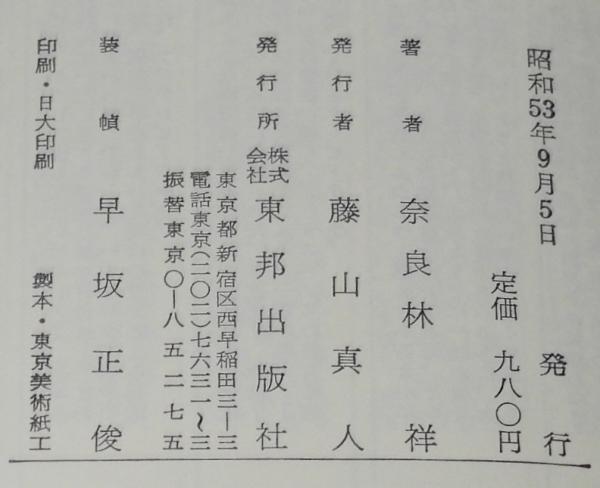 昭和53年9月5日 発行
定価 九八〇円
著者 奈良林 祥
発行者 藤山真人
発行所 株式会社 東邦出版社
東京都新宿区西早稲田三―三
電話東京(二〇二)七六三一〜三
振替東京〇―八五二七五
装幀 早坂正俊
印刷・日大印刷 製本・東京美術紙工